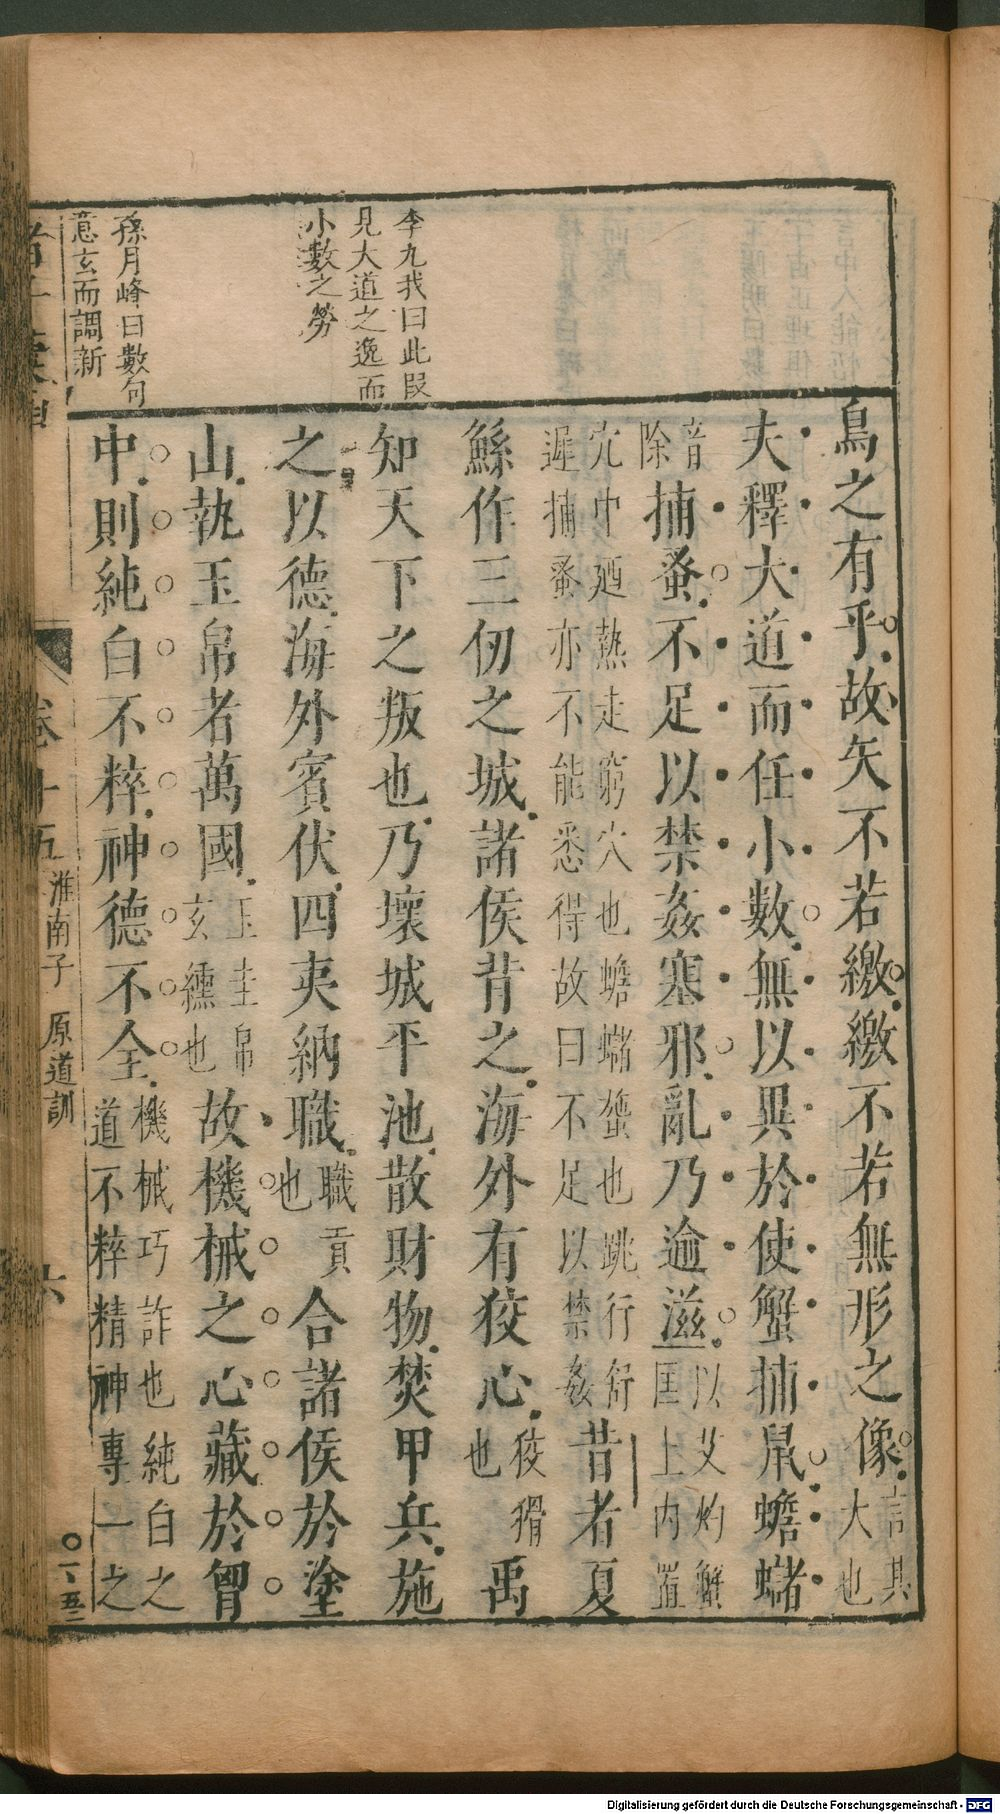 李九我曰此段
見大道之逸而
小數之勞
孫月峰曰數句
意玄而調新
鳥之有乎故矢不若繳繳不若無形之像言其大也
夫釋大道而任小數無以異於使蟹捕鼠蟾蠩
音除捕蚤不足以禁姦塞邪亂乃逾滋以艾灼蟹匡上内置
穴中廼熱走窮穴也蟾蠩蟹也跳行舒遲捕蚤亦不能悉得故曰不足以禁姦昔者夏
鯀作三仞之城諸侯背之海外有狡心狡猾也禹
知天下之叛也乃壞城平池散財物焚甲兵施
之以德海外賓伏四夷納職職貢也合諸侯於塗
山執玉帛者萬國玉圭帛玄纁也故機械之心藏於胷
中則純白不粹神德不全機械巧詐也純白之道不粹精神專一之
卷十五 淮南子 原道訓 六
○一、五二
Digitalisierung gefördert durch die Deutsche Forschungsgemeinschaft - DFG